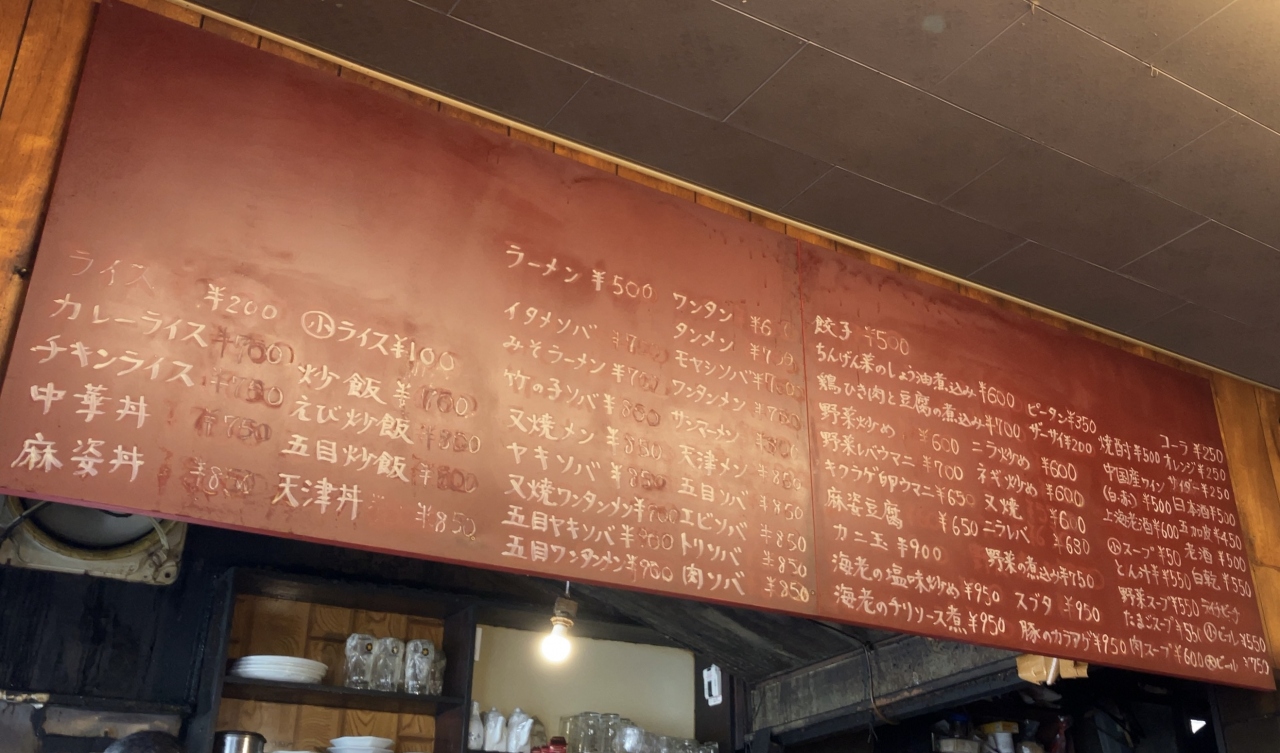 ライス ¥200 ㊙ライス¥100
カレーライス ¥700 炒飯 ¥700
チキンライス ¥750 えび炒飯 ¥850
中華丼 ¥750 五目炒飯
麻姿丼 ¥850 天津丼 ¥850
ラーメン ¥500 ワンタン
イタメソバ タンメン
みそラーメン モヤシソバ
竹の子ソバ ワンタンメン
叉焼メン ¥850 サンマーメン
ヤキソバ 天津メン
叉焼ワンタンメン 五目ソバ ¥850
五目ヤキソバ ¥900 エビソバ ¥850
五目ワンタンメン ¥900 トリソバ ¥850
肉ソバ ¥850
餃子 ¥500
ちんげん菜のしょう油煮込み ¥600 ピータン¥350
鶏ひき肉と豆腐の煮込み ¥700 ザーサイ¥200
野菜炒め ¥600 ニラ炒め ¥600
野菜レバウマニ ¥700 ネギ炒め ¥600
キクラゲ卵ウマニ ¥650 叉焼 ¥600
麻姿豆腐 ¥650 ニラレバ ¥680
カニ玉 ¥900 野菜の煮込み ¥750
海老の塩味炒め ¥950 スブタ ¥950
海老のチリソース煮 ¥950 豚のカラアゲ¥750
コーラ ¥250
焼酎 ¥500 オレンジ ¥250
中国産ワイン サイダー ¥250
(白・赤) ¥500 日本酒 ¥500
上海老酒 ¥600 五加皮 ¥450
㊙スープ ¥50 老酒 ¥500
とん汁 ¥550 白乾 ¥550
野菜スープ ¥550
たまごスープ ㊙ビール ¥550
肉スープ ¥600 ビール ¥750